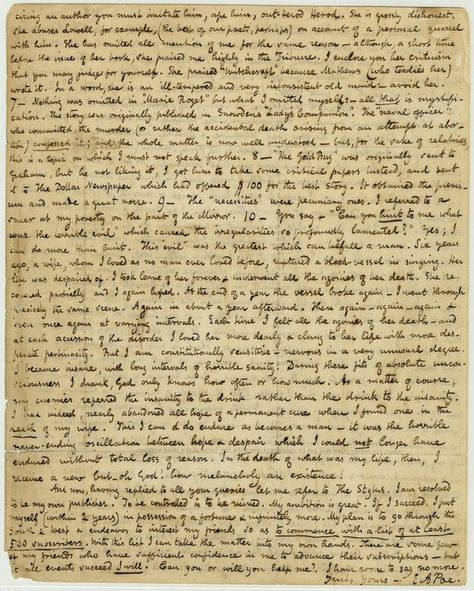 curing an author you must imitate him, ape him, out-Herod Herod. She is grossly dishonest.
She abuses Lowell, for example, (the best of our poets, perhaps) on account of a personal quarrel
with him. She has omitted all mention of me for the same reason — although, a short time
before the issue of her book, she praised me highly in the Tribune. I enclose you her criticism
that you may judge for yourself. She praised "Witchcraft" because Mathews (who toadies her)
wrote it. In a word, she is an ill-tempered and very inconsistent old maid — avoid her.
7 — Nothing was omitted in "Marie Roget" but what I omitted myself: — all that is mystifi-
cation. The story was originally published in Snowden's "Lady's Companion". The "naval officer"
who committed the murder (or rather the accidental death arising from an attempt at abor-
tion) confessed it; and the whole matter is now well understood — but, for the sake of relatives,
this is a topic on which I must not speak further. 8 — "The Gold Bug" was originally sent to
Graham, but he not liking it, I got him to take some critical papers instead, and sent
it to the Dollar Newspaper which had offered $100 for the best story. It obtained the premi-
um and made a great noise. 9 — The "necessities" were pecuniary ones. I referred to a
sneer at my poverty on the part of the Mirror. 10 — You say — "Can you hint to me what
was the terrible evil" which caused the irregularities so profoundly lamented?" Yes; I
can do more than hint. This "evil" was the greatest which can befall a man. Six years
ago, a wife, whom I loved as no man ever loved before, ruptured a blood-vessel in singing. Her
life was despaired of. I took leave of her forever & underwent all the agonies of her death. She re-
covered partially and I again hoped. At the end of a year the vessel broke again. I went through
precisely the same scene. Again in about a year afterward. Then again — again — again &
even once again at varying intervals. Each time I felt all the agonies of her death — and
at each accession of the disorder I loved her more dearly & clung to her life with more des-
perate pertinacity. But I am constitutionally sensitive — nervous in a very unusual degree.
I became insane, with long intervals of horrible sanity. During these fits of absolute uncon-
sciousness I drank, God only knows how often or how much. As a matter of course,
my enemies referred the insanity to the drink rather than the drink to the insanity.
I had indeed, nearly abandoned all hope of a permanent cure when I found one in the
death of my wife. This I can & do endure as becomes a man — it was the horrible
never-ending oscillation between hope & despair which I could not longer have
endured without total loss of reason. In the death of what was my life, then, I
receive a new but — oh God! how melancholy an existence.
And now, having replied to all your queries let me refer to The Stylus. I am resolved
to be my own publisher. To be controlled is to be ruined. My ambition is great. If I succeed, I put
myself (within 2 years) in possession of a fortune & infinitely more. My plan is to go through the
South & West & endeavor to interest my friends so as to commence with a list of at least
500 subscribers. With this list I can take the matter into my own hands. There are some few
of my friends who have sufficient confidence in me to advance their subscriptions — but
at all events succeed I will. Can you or will you help me? I have room to say no more.
Truly Yours — E A Poe.